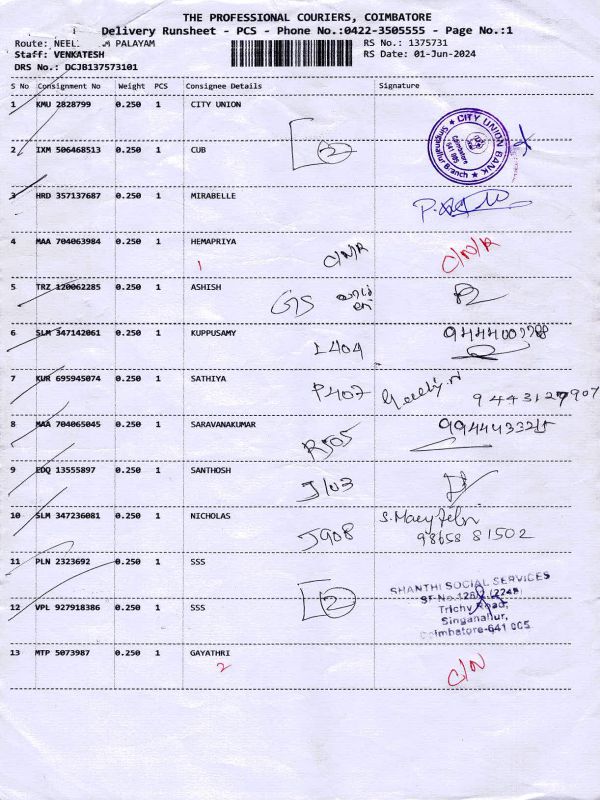 THE PROFESSIONAL COURIERS, COIMBATORE
Delivery Runsheet - PCS - Phone No.:0422-3505555 - Page No.:1
Route: NEEL M PALAYAM
RS No.: 1375731
Staff: VENKATESH
RS Date: 01-Jun-2024
DRS No.: DCJB137573101
S No Consignment No Weight PCS Consignee Details Signature
1 KMU 2828799 0.250 1 CITY UNION
2 IXM 506468513 0.250 1 CUB
2
CITY UNION BANK
Singanallur Branch
Coimbatore
641 005
3 HRD 357137687 0.250 1 MIRABELLE
4 MAA 704063984 0.250 1 HEMAPRIYA C/N/R C/N/R
1
5 TRZ 120062285 0.250 1 ASHISH
6 SLM 347142061 0.250 1 KUPPUSAMY L404
7 KUR 695945074 0.250 1 SATHIYA P407 9443127907
8 MAA 704065045 0.250 1 SARAVANAKUMAR R505
9 EDQ 13555897 0.250 1 SANTHOSH J103
10 SLM 347236081 0.250 1 NICHOLAS J908
98658 81502
11 PLN 2323692 0.250 1 SSS
12 VPL 927918386 0.250 1 SSS
2
SHANTHI SOCIAL SERVICES
Trichy Road,
Singanallur,
Coimbatore-641 005
13 MTP 5073987 0.250 1 GAYATHRI C/N
2